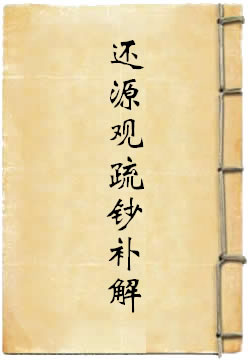 还源观疏钞补解